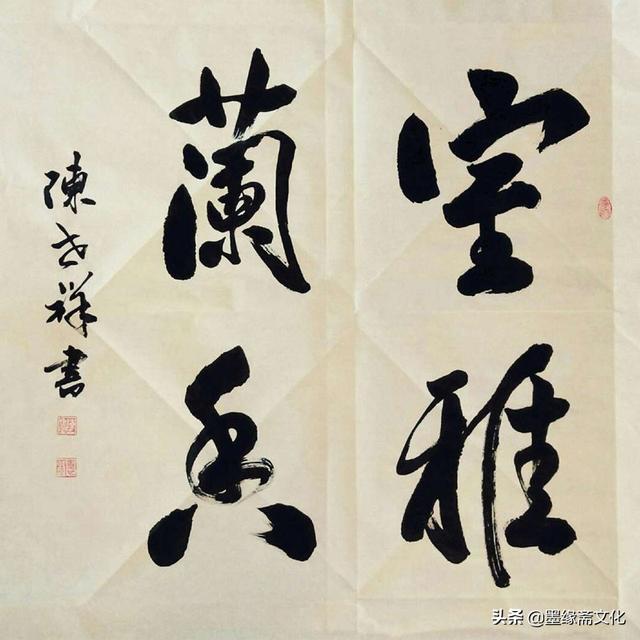 室雅
蘭香
陳世祥書
头条 @墨缘斋文化